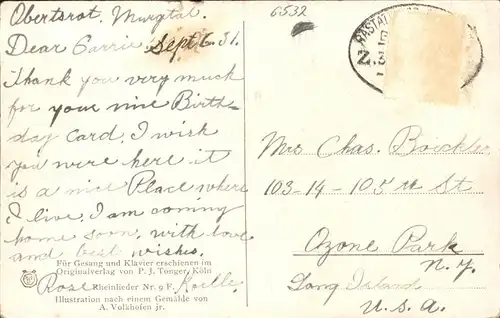 Obertsrot. Murgtal.
6532
Dear Carrie, Sept 6. 31.
RASTAT
Thank you very much
for your nice Birth-
day Card. I wish
you were here it
is a nice Place where
I live. I am coming
home soon. with love
and best wishes.
Für Gesang und Klavier erschienen im
Originalverlag von P. J. Tonger, Köln
Rose
Rheinlieder Nr. 9 F.
Illustration nach einem Gemälde von
A. Volkhofen jr.
Mrs Chas. Boeckler
103-14-105 th St
Ozone Park
N.Y.
Long Island
U.S.A.